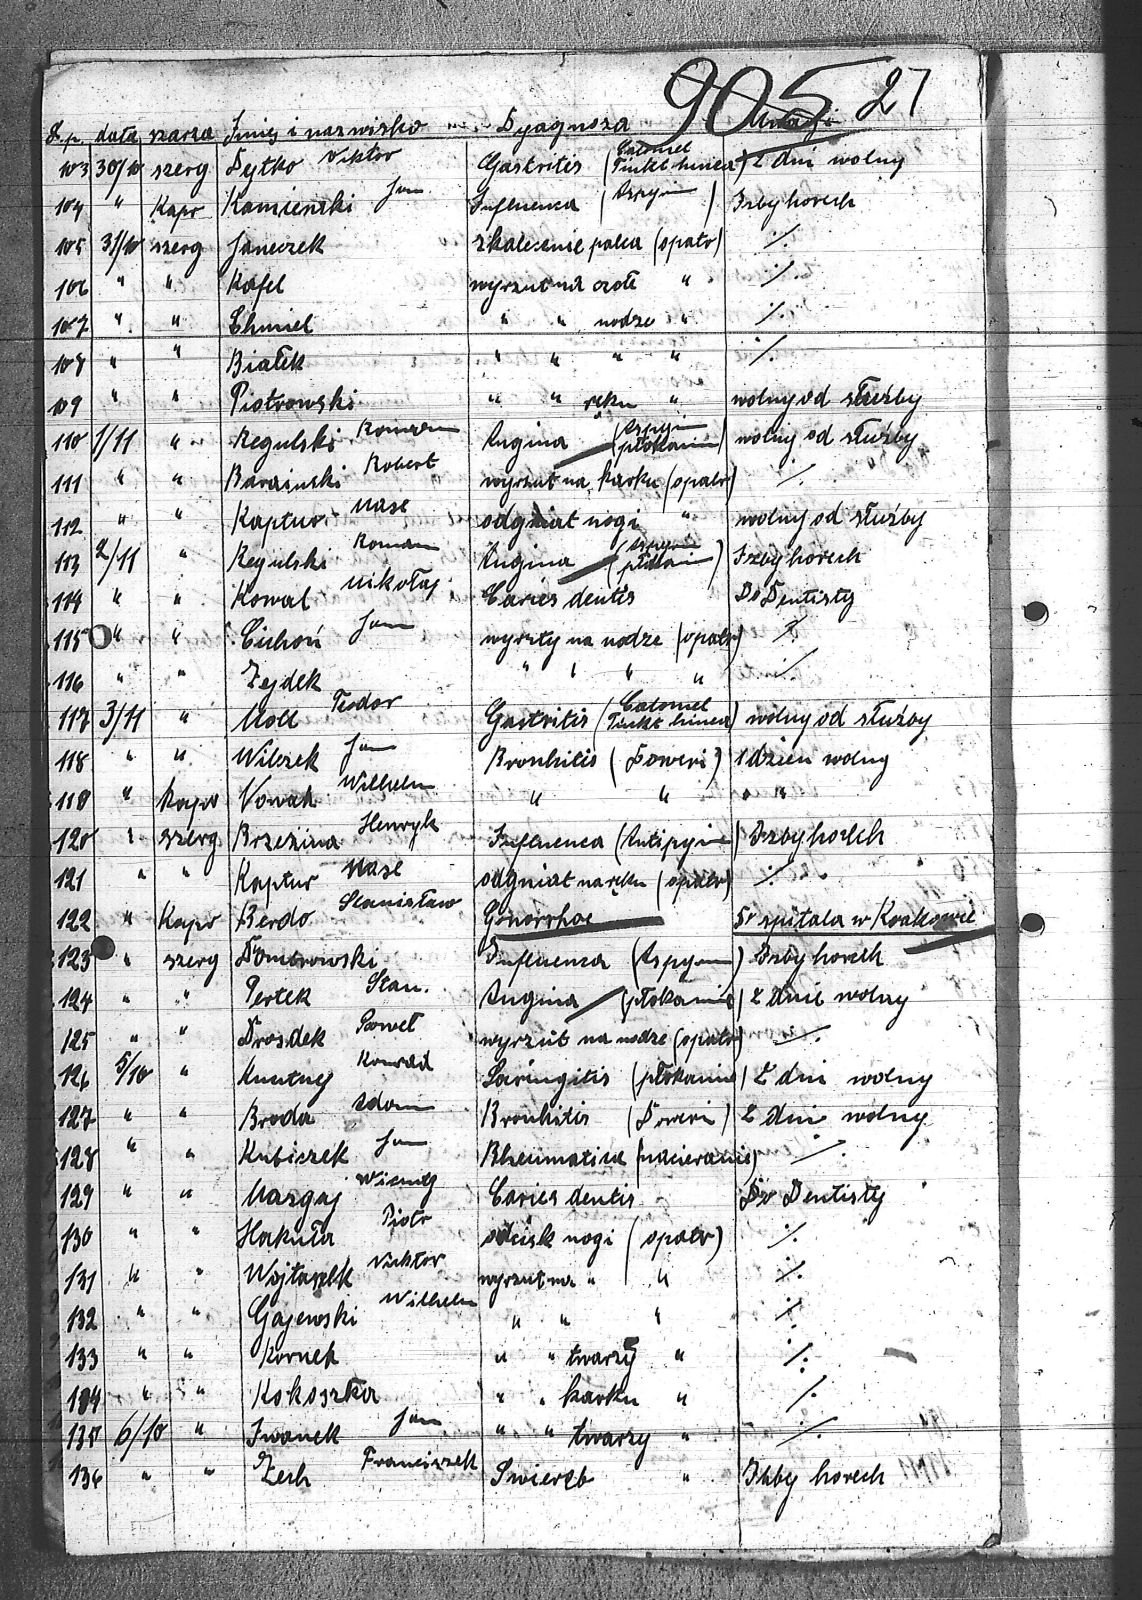 905 27
L.p. data szarza Imię i nazwisko Dyagnoza Uwagi
103 30/10 szerg Dytko Viktor Gastritis (Calomel Tinkt. hinea) 2 dni wolny
104 " Kapr Kamienski Jan Influenca (Aspyrin) Izby horech
105 31/10 szerg Janeczek skalecenie palca (opatr) ·/.
106 " " Kafel wyrzut na czole " ·/.
107 " " Chmiel " " nodze " ·/.
108 " " Białek " " " " ·/.
109 " " Piotrowski " " ręku " wolny od służby
110 1/11 " Regulski Roman Angina (Aspyrin płokanie) wolny od służby
111 " " Barainski Robert wyrzut na karku (opatr) ·/.
112 " " Kaptur Mase odgniat nogi " wolny od służby
113 2/11 " Regulski Roman Angina (Aspyrin płokanie) Izby horech
114 " " Kowal Mikołaj Caries dentis Do Dentisty
115 " " Cichoń Jan wyrzty na nodze (opatr) ·/.
116 " " Zejdek " " " " ·/.
117 3/11 " Moll Teodor Gastritis (Calomel Tinkt hinea) wolny od służby
118 " " Wilczek Jan Bronhitis (Doweri) 1 dzien wolny
119 " Kapr Nowak Wilhelm " " " "
120 " szerg Brzezina Henryk Influenca (Antipyrin) Izby horech
121 " " Kaptur Mase odgniat na ręku (opatr) ·/.
122 " Kapr Berdo Stanisław Gonorrhoe Do spitala w Krakowie
123 " szerg Dombrowski Influenca (Aspyrin) Izby horech
124 " " Pertek Stan. Angina (płokanie) 2 dnie wolny
125 " " Drozdek Paweł wyrzut na nodze (opatr) ·/.
126 5/10 " Kuntny Konrad Laringitis (płokanie) 2 dni wolny
127 " " Broda Adam Bronhitis (Doweri) 2 dni wolny
128 " " Kubiczek Jan Rheumatisu (nacieranie) ·/.
129 " " Mazgaj Caries dentis Do Dentisty
130 " " Hakuła Piotr odcisk nogi (opatr) ·/.
131 " " Wojtaszek Viktor wyrzut na " " ·/.
132 " " Gajewski Wilhelm " " " ·/.
133 " " Kornek " " twarzy " ·/.
134 " " Kokoszka " " karku " ·/.
135 6/10 " Iwanek Jan " " twarzy " ·/.
136 " " Zech Franciszek Swierzb " Izby horech